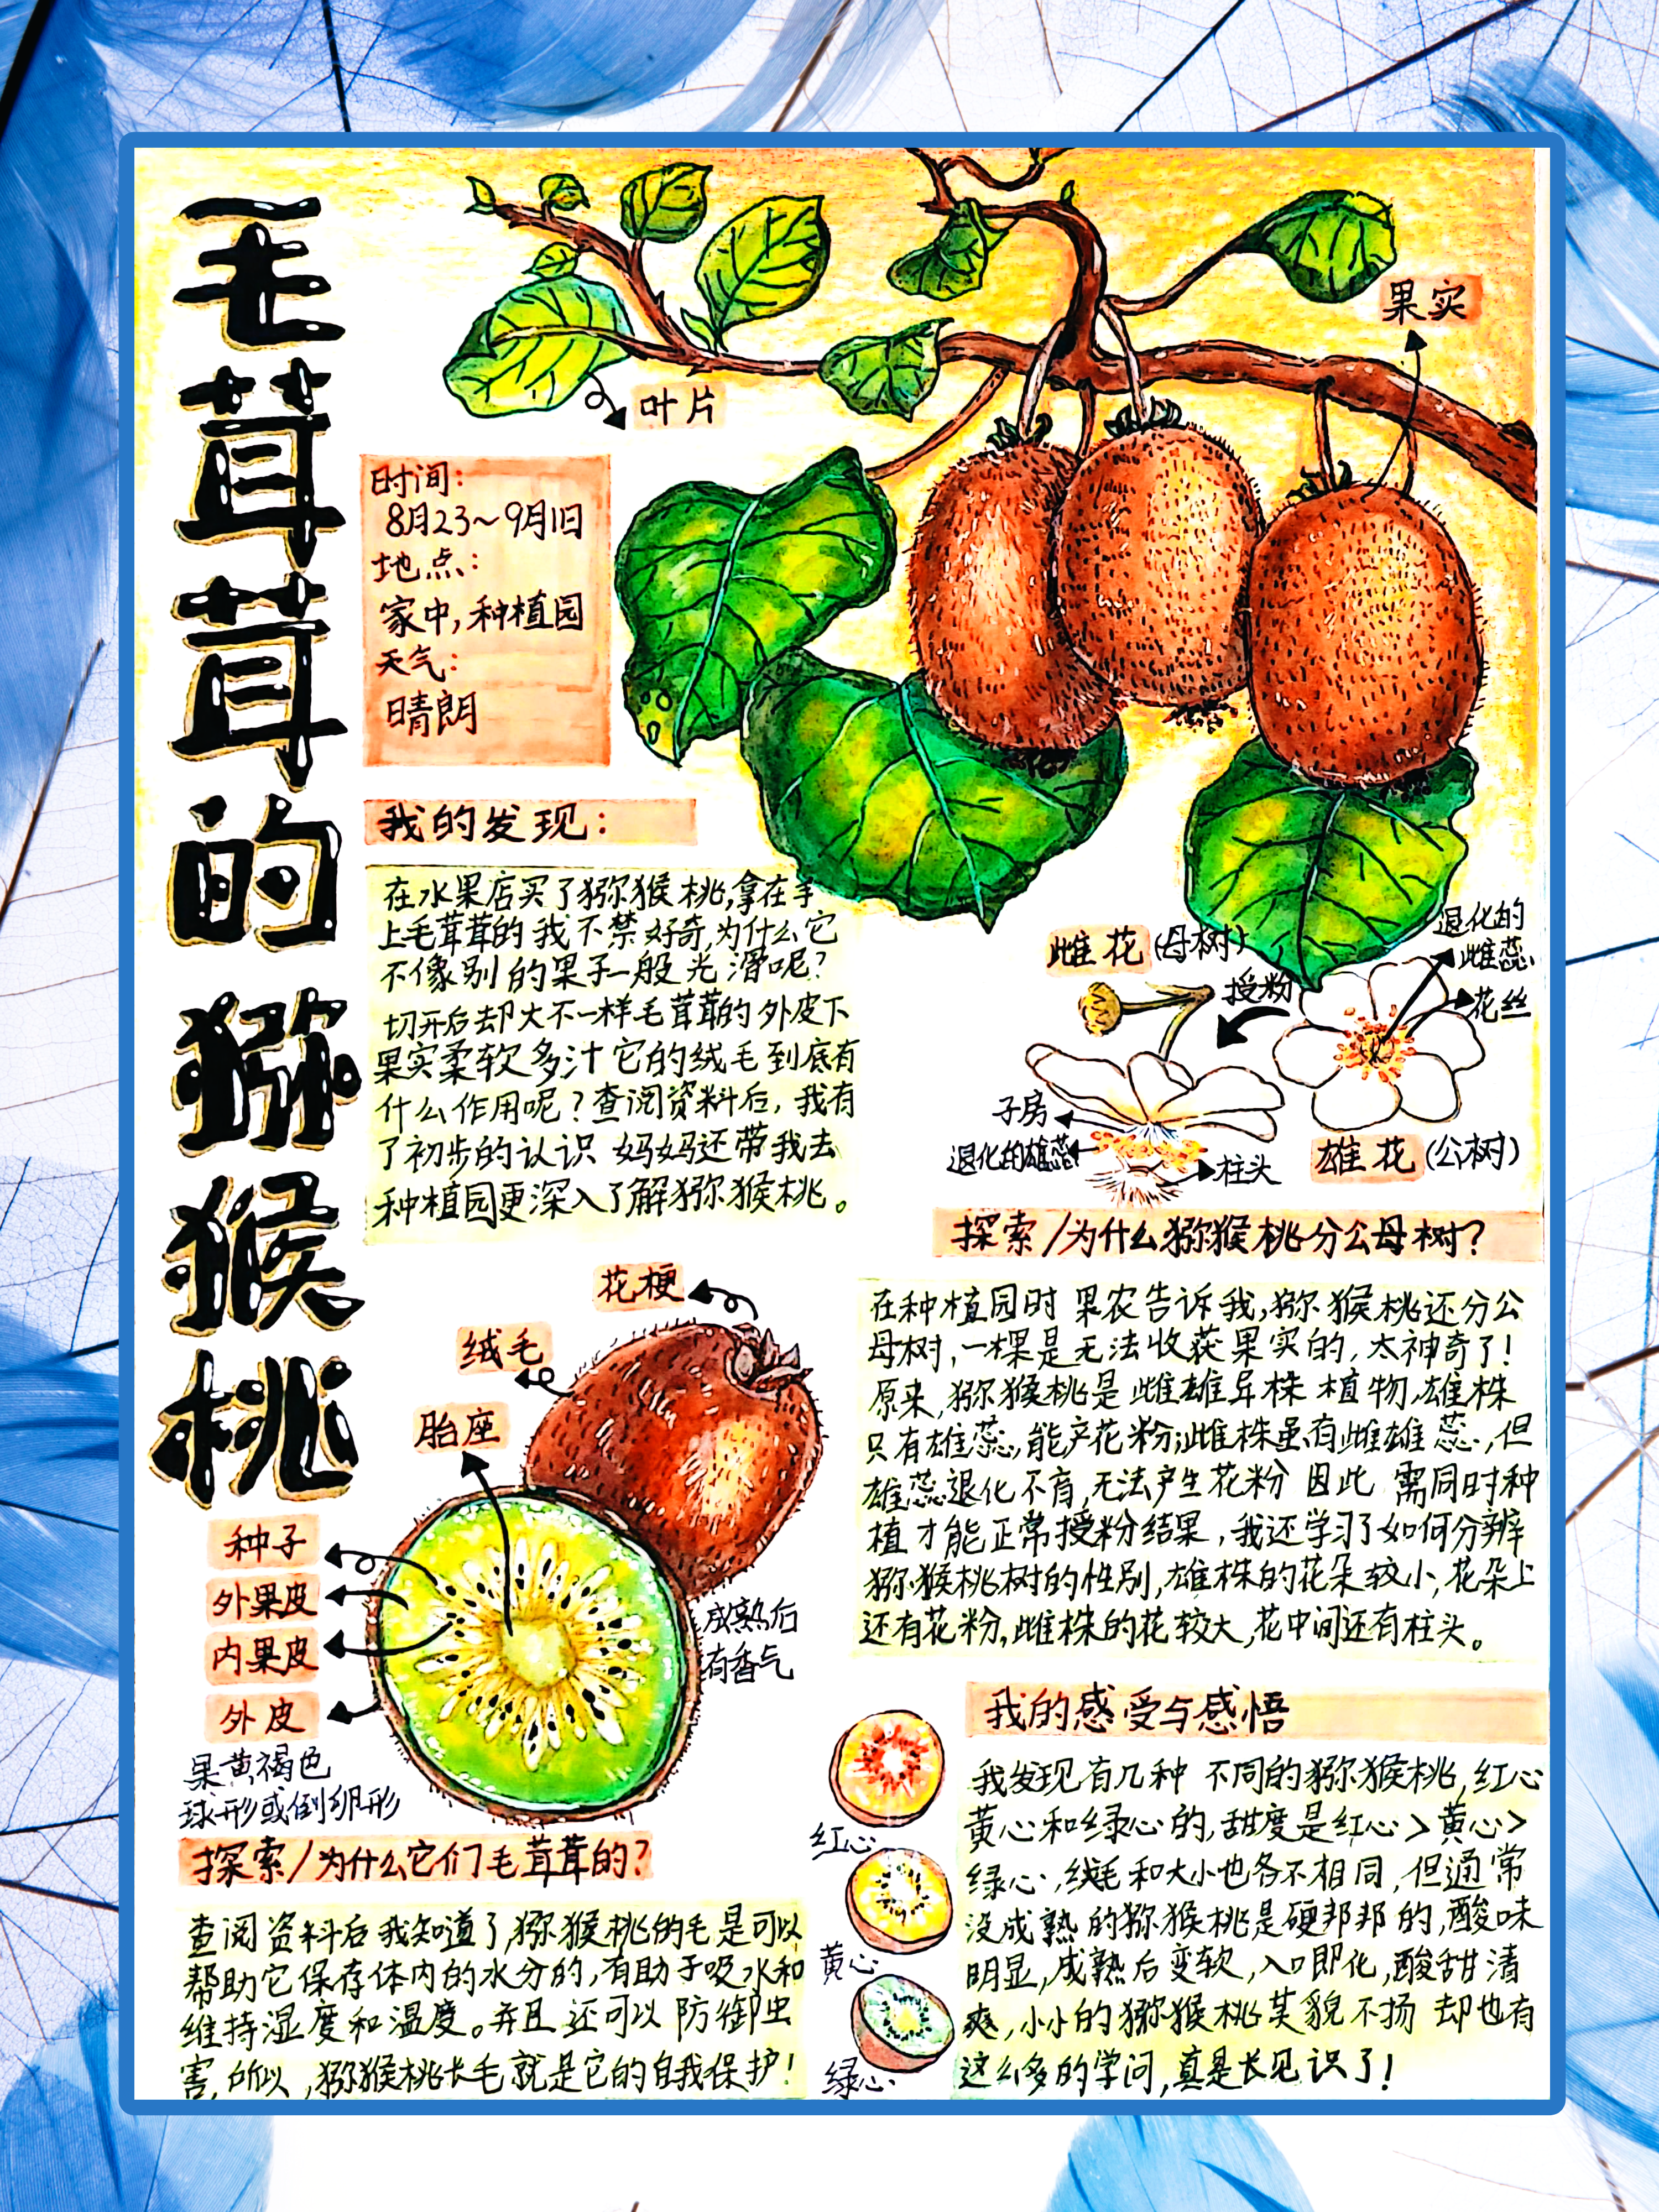 毛茸茸的猕猴桃
叶片
果实
时间:
8月23~9月1日
地点:
家中,种植园
天气:
晴朗
我的发现:
在水果店买了猕猴桃,拿在手
上毛茸茸的我不禁好奇,为什么它
不像别的果子一般光滑呢?
切开后却大不一样毛茸茸的外皮下
果实柔软多汁它的绒毛到底有
什么作用呢?查阅资料后,我有
了初步的认识 妈妈还带我去
种植园更深入了解猕猴桃。
雌花(母树)
授粉
退化的
雌蕊
花丝
子房
退化的雄蕊
柱头
雄花(公树)
探索/为什么猕猴桃分公母树?
在种植园时 果农告诉我,猕猴桃还分公
母树,一棵是无法收获果实的,太神奇了!
原来,猕猴桃是雌雄异株植物,雄株
只有雄蕊,能产花粉;雌株虽有雌雄蕊,但
雄蕊退化不育,无法产生花粉 因此 需同时种
植才能正常授粉结果,我还学习了如何分辨
猕猴桃树的性别,雄株的花朵较小,花朵上
还有花粉,雌株的花较大,花中间还有柱头。
花梗
绒毛
胎座
种子
外果皮
内果皮
外皮
果黄褐色
球形或倒卵形
成熟后
有香气
探索/为什么它们毛茸茸的?
查阅资料后我知道了,猕猴桃的毛是可以
帮助它保存体内的水分的,有助于吸水和
维持湿度和温度。并且还可以防御虫
害,所以,猕猴桃长毛就是它的自我保护!
红心
黄心
绿心
我的感受与感悟
我发现有几种 不同的猕猴桃,红心
黄心和绿心的,甜度是红心>黄心>
绿心,绒毛和大小也各不相同,但通常
没成熟的猕猴桃是硬邦邦的,酸味
明显,成熟后变软,入口即化,酸甜清
爽,小小的猕猴桃其貌不扬 却也有
这么多的学问,真是长见识了!